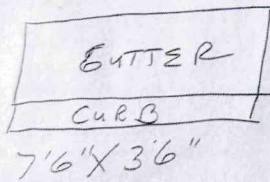 GUTTER
CURB
7'6" X 3'6"